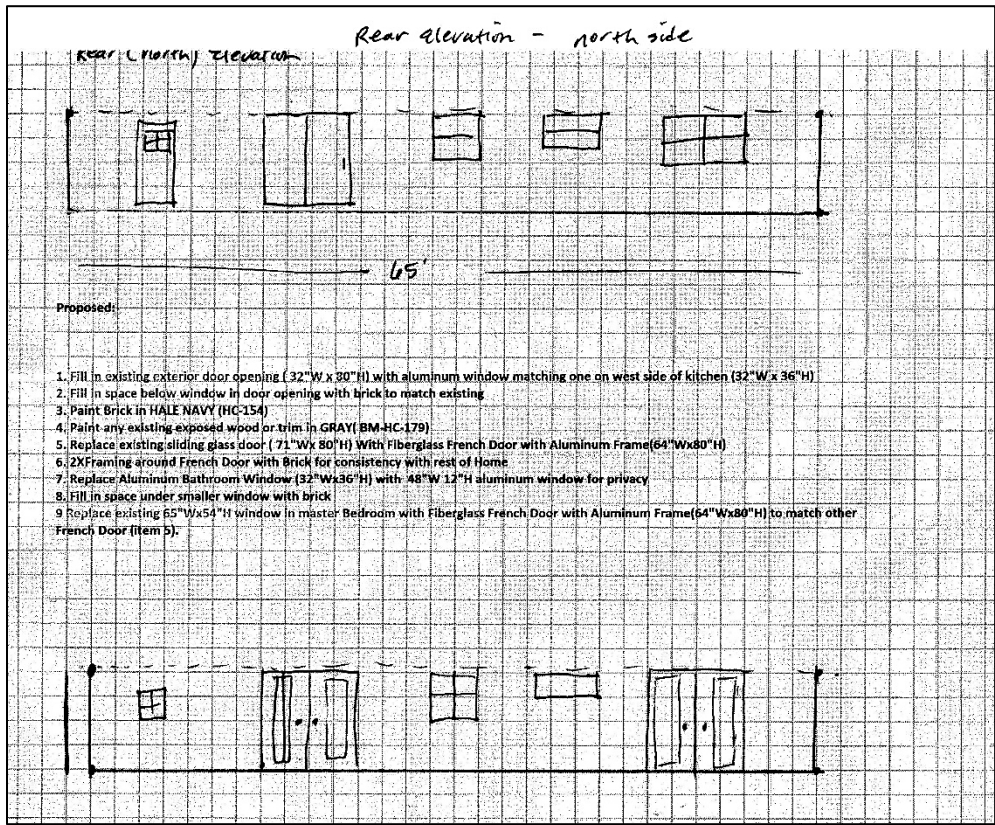 Rear elevation - north side
Rear (north) elevation
65'
Proposed:
1. Fill in existing exterior door opening ( 32"W x 80"H) with aluminum window matching one on west side of kitchen (32"W x 36"H)
2. Fill in space below window in door opening with brick to match existing
3. Paint Brick in HALE NAVY (HC-154)
4. Paint any existing exposed wood or trim in GRAY( BM-HC-179)
5. Replace existing sliding glass door ( 71"Wx 80"H) With Fiberglass French Door with Aluminum Frame(64"Wx80"H)
6. 2XFraming around French Door with Brick for consistency with rest of Home
7. Replace Aluminum Bathroom Window (32"Wx36"H) with 48"W 12"H aluminum window for privacy
8. Fill in space under smaller window with brick
9 Replace existing 65"Wx54"H window in master Bedroom with Fiberglass French Door with Aluminum Frame(64"Wx80"H) to match other
French Door (item 5).